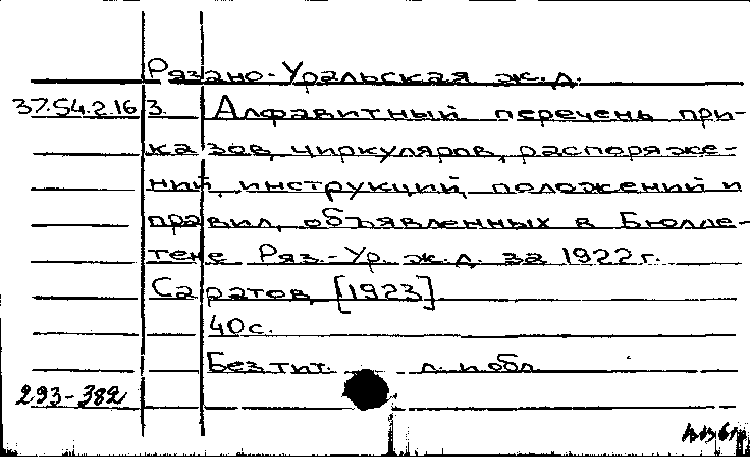 Рязано-Уральская ж.д.
37.54.2.16 3. Алфавитный перечень при-
казов, циркуляров, распоряже-
ний, инструкций, положений и
правил, объявленных в Бюлле-
тене Ряз.-Ур. ж.д. за 1922 г.
Саратов, [1923].
40 с.
Без тит. л. и обл.
293-382